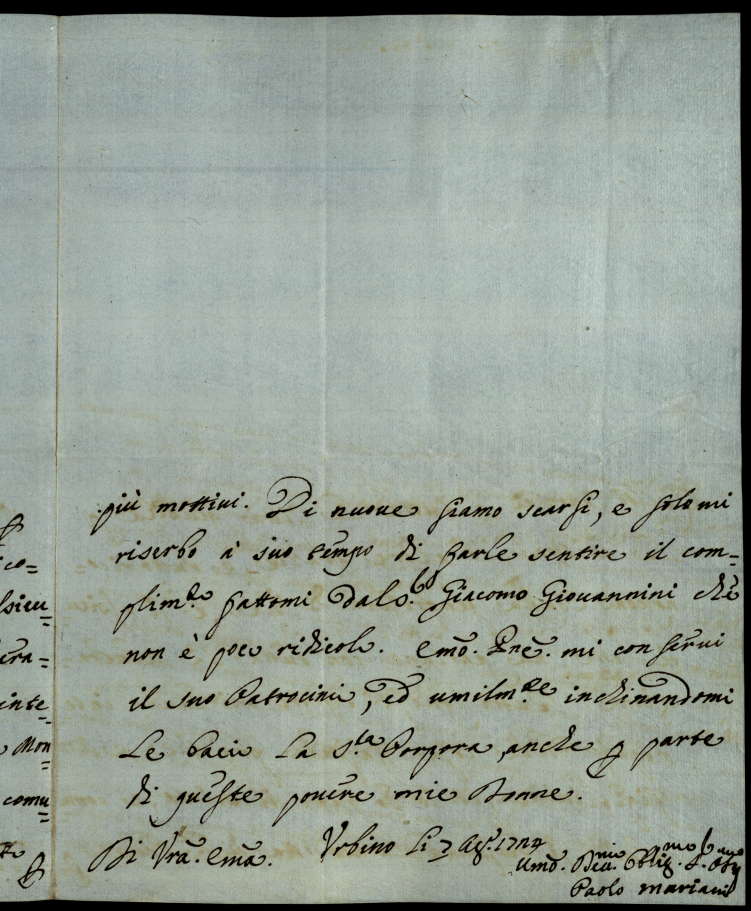 ico=
lsicu=
era=
inte=
Mon=
comu=
più mottivi. Di nuove siamo scarsi, e solo mi
riserbo à suo tempo di farle sentire il com=
plim.to fattomi dal Giacomo Giovannini chè
non è poco ridicolo. Emõ. Pnẽ. mi conservi
il suo Patrocinio, ed umilm.te inchinandomi
Le bacio La S.ta Porpora, anche p parte
di queste povere mie Donne.
Di Vrã. Emã. Urbino Li 7 Ag.o 1724
Umõ. Dev.mo Oblig.mo
Paolo Mariani